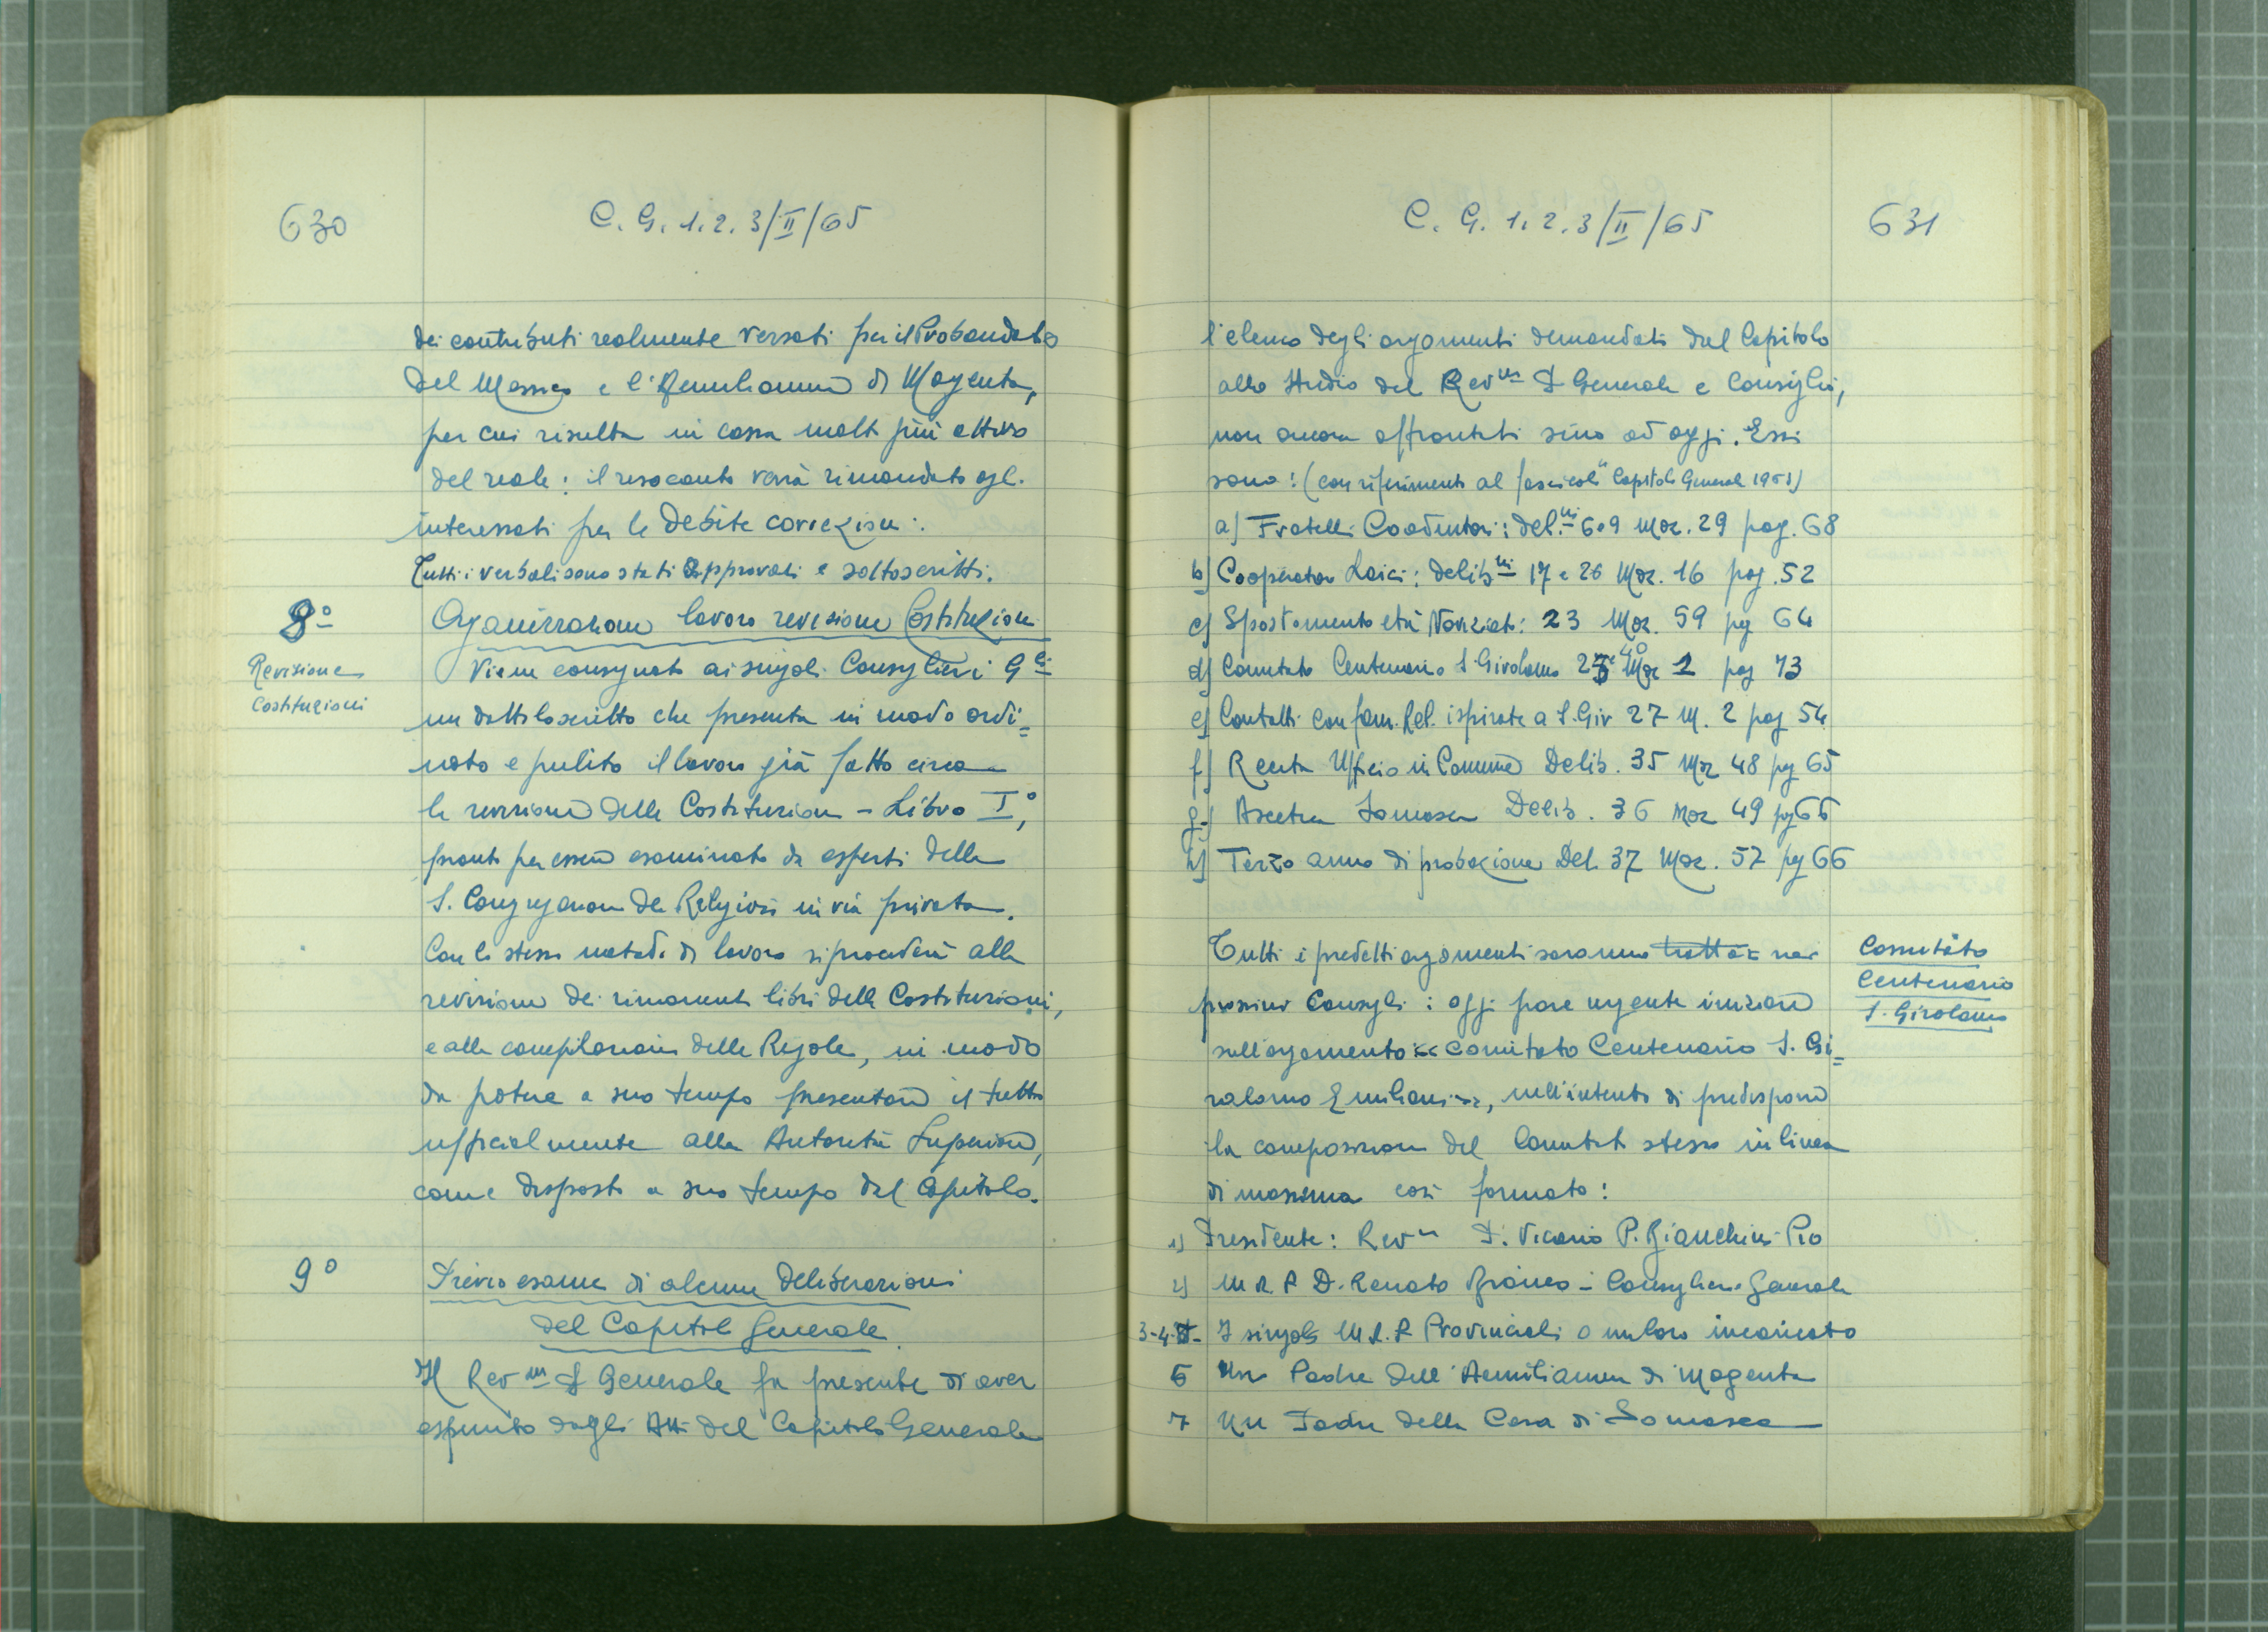 630
C. G. 1. 2. 3/II/65
dei contributi realmente versati per il Probandato
del Messico e l'Aemilianum di Magenta,
per cui risulta in cassa molto più attivo
del reale: il resoconto verrà rimandato agl.
interessati per le debite correzioni.
Tutti i verbali sono stati approvati e sottoscritti.
8º
Organizzazione lavoro revisione Costituzioni
Revisione
Costituzioni
Viene consegnato ai singoli Consiglieri Gli
un dattiloscritto che presenta in modo ordi=
nato e pulito il lavoro già fatto circa
la revisione delle Costituzioni - Libro Iº,
pronto per essere esaminato da esperti della
S. Congregazione dei Religiosi in via privata.
Con lo stesso metodo di lavoro si procederà alla
revisione dei rimanenti libri delle Costituzioni,
e alla compilazione delle Regole, in modo
da potere a suo tempo presentare il tutto
ufficialmente alla Autorità Superiore,
come disposto a suo tempo dal Capitolo.
9º
Previo esame di alcune deliberazioni
del Capitolo Generale.
Il Rev.mo P. Generale fa presente di aver
espunto dagli Atti del Capitolo Generale
C. G. 1. 2. 3/II/65
631
l'elenco degli argomenti demandati dal Capitolo
allo studio del Rev.mo P. Generale e Consiglio,
non ancora affrontati sino ad oggi. Essi
sono: (con riferimento al fascicolo "Capitolo Generale 1963)
a) Fratelli Coadiutori: del.ni 6 e 9 Moz. 29 pag. 68
b) Cooperatori Laici: delib.ni 17 e 26 Moz. 16 pag. 52
c) Spostamento età Noviziato: 23 Moz. 59 pg 64
d) Comitato Centenario S. Girolamo Moz 1 pag 73
e) Contatti con fam. Rel. ispirate a S. Gir 27 M. 2 pag 54
f) Recita Ufficio in Comune Delib. 35 Moz 48 pg 65
g) Ascetica Somasca Delib. 36 Moz 49 pg 66
h) Terzo anno di probazione Del. 37 Moz. 57 pg 66
Tutti i predetti argomenti saranno trattati nei
prossimi Consigli: oggi pare urgente iniziare
Comitato
Centenario
S. Girolamo
sull'argomento << Comitato Centenario S. Gi=
rolamo Emiliani >>, nell'intento di predisporre
la composizione del Comitato stesso in linea
di massima così formato:
1) Presidente: Rev.mo P. Vicario P. Bianchini Pio
2) M. R. P. D. Renato Bianco - Consigliere Generale
3-4-5- I singoli M. R. P. Provinciali o un loro incaricato
6 Un Padre dell'Aemilianum di Magenta
7 Un Padre della Casa di Somasca